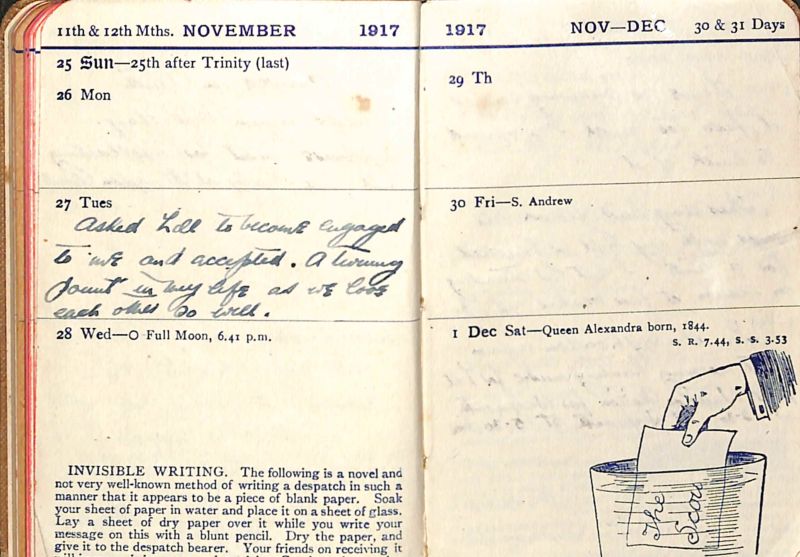 11th & 12th Mths. NOVEMBER 1917
25 Sun—25th after Trinity (last)
26 Mon
27 Tues
Asked to become engaged
to me and accepted. A turning
point in my life as we love
each other so well.
28 Wed—O Full Moon, 6.41 p.m.
INVISIBLE WRITING. The following is a novel and
not very well-known method of writing a despatch in such a
manner that it appears to be a piece of blank paper. Soak
your sheet of paper in water and place it on a sheet of glass.
Lay a sheet of dry paper over it while you write your
message on this with a blunt pencil. Dry the paper, and
give it to the despatch bearer. Your friends on receiving it
1917 NOV—DEC 30 & 31 Days
29 Th
30 Fri—S. Andrew
1 Dec Sat—Queen Alexandra born, 1844.
S. R. 7.44, S. S. 3.53
The
Scout